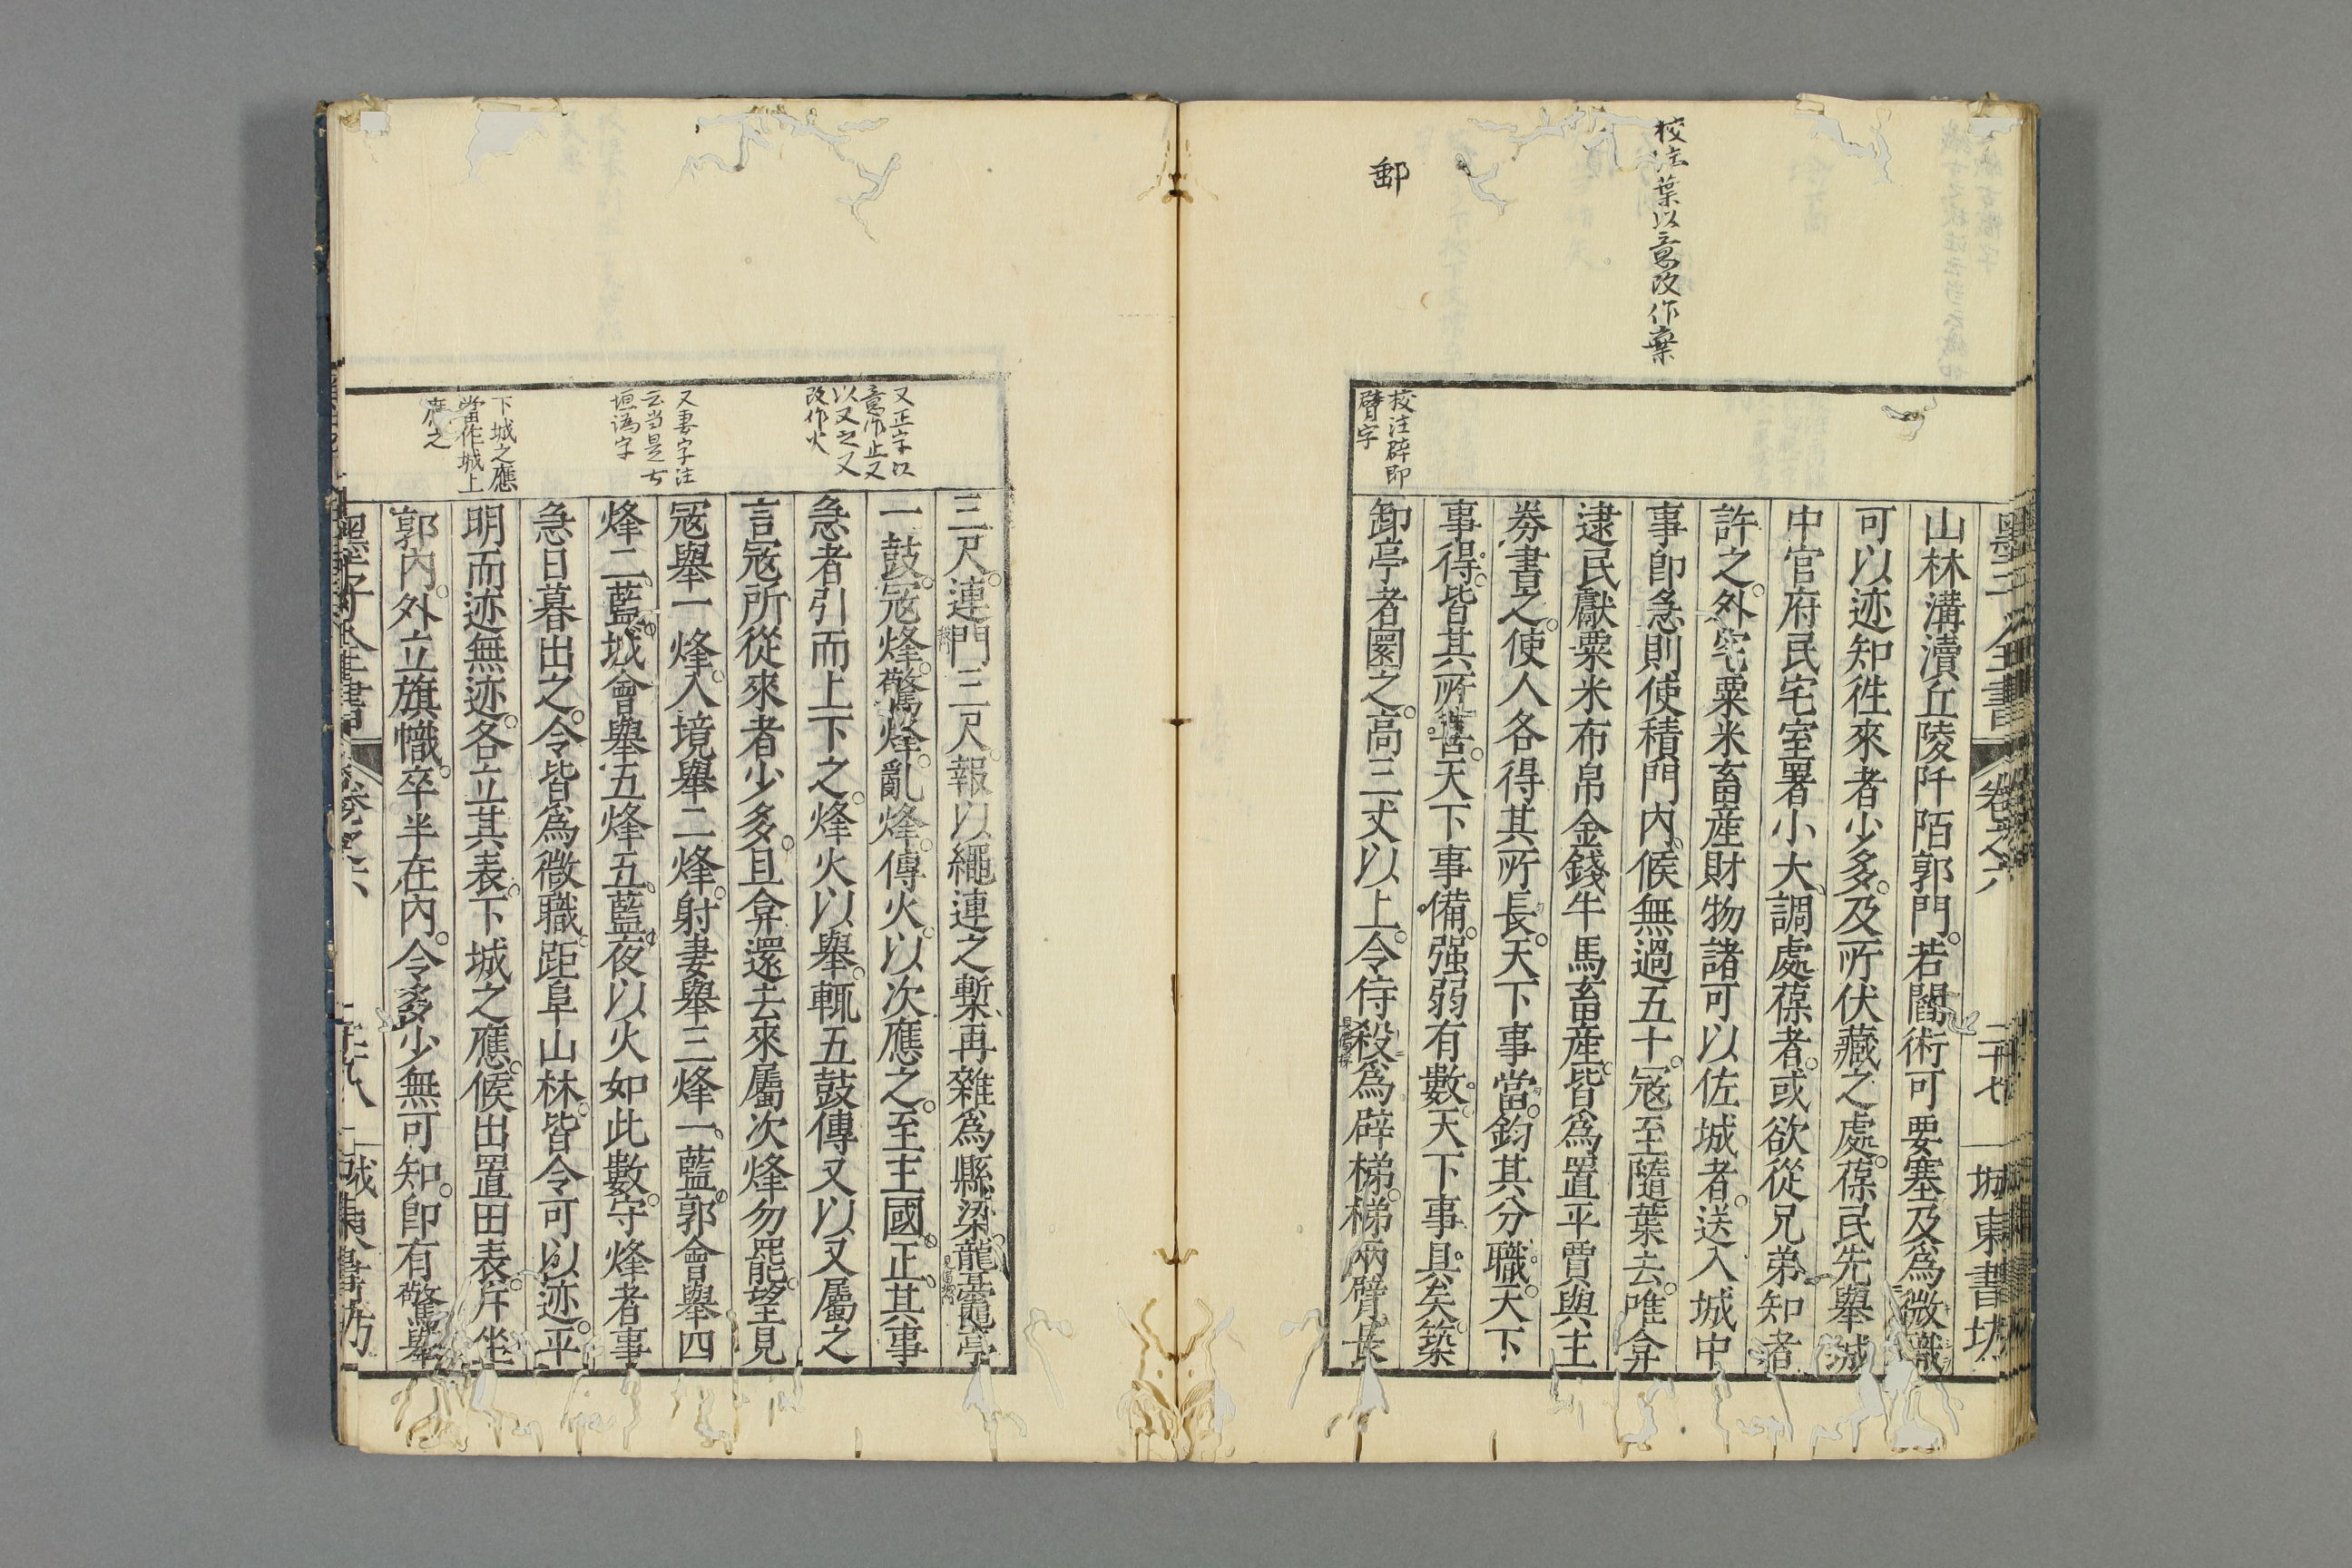 校注葉以意改作棄
郵
校注辟即
臂字
墨子全書 卷之六 二十七 城東書坊
山林溝瀆丘陵阡陌郭門若閻術可要塞及爲微職
可以迹知徃來者少多及所伏藏之處葆民先舉城
中官府民宅室署小大調處葆者或欲從兄弟知者
許之外宅粟米畜産財物諸可以佐城者送入城中
事即急則使積門内候無過五十冦至隨葉去唯弇
逮民獻粟米布帛金錢牛馬畜産皆爲置平賈與主
券書之使人各得其所長天下事當鈞其分職天下
事得皆其所喜天下事備强弱有數天下事具矣築
卸亭者圜之高三丈以上令侍殺爲辟梯梯兩臂長
又正字以
意作止又
以又之又
改作火
又妻字注
云当是女
垣譌字
下城之應
當作城上
應之
三尺連門三尺報以繩連之槧再雜爲縣梁龍亭
一鼓冦烽驚烽亂烽傳火以次應之至主國正其事
急者引而上下之烽火以舉輒五鼓傳又以又屬之
言冦所從來者少多旦弇還去來屬次烽勿罷望見
冦舉一烽入境舉二烽射妻舉三烽一藍郭會舉四
烽二藍城會舉五烽五藍夜以火如此數守烽者事
急日暮出之令皆爲微職距阜山林皆令可以迹平
明而迹無迹各立其表下城之應候出置田表斥坐
郭内外立旗幟卒半在内令多少無可知即有驚舉
墨子全書 卷之六 二十八 城東書坊